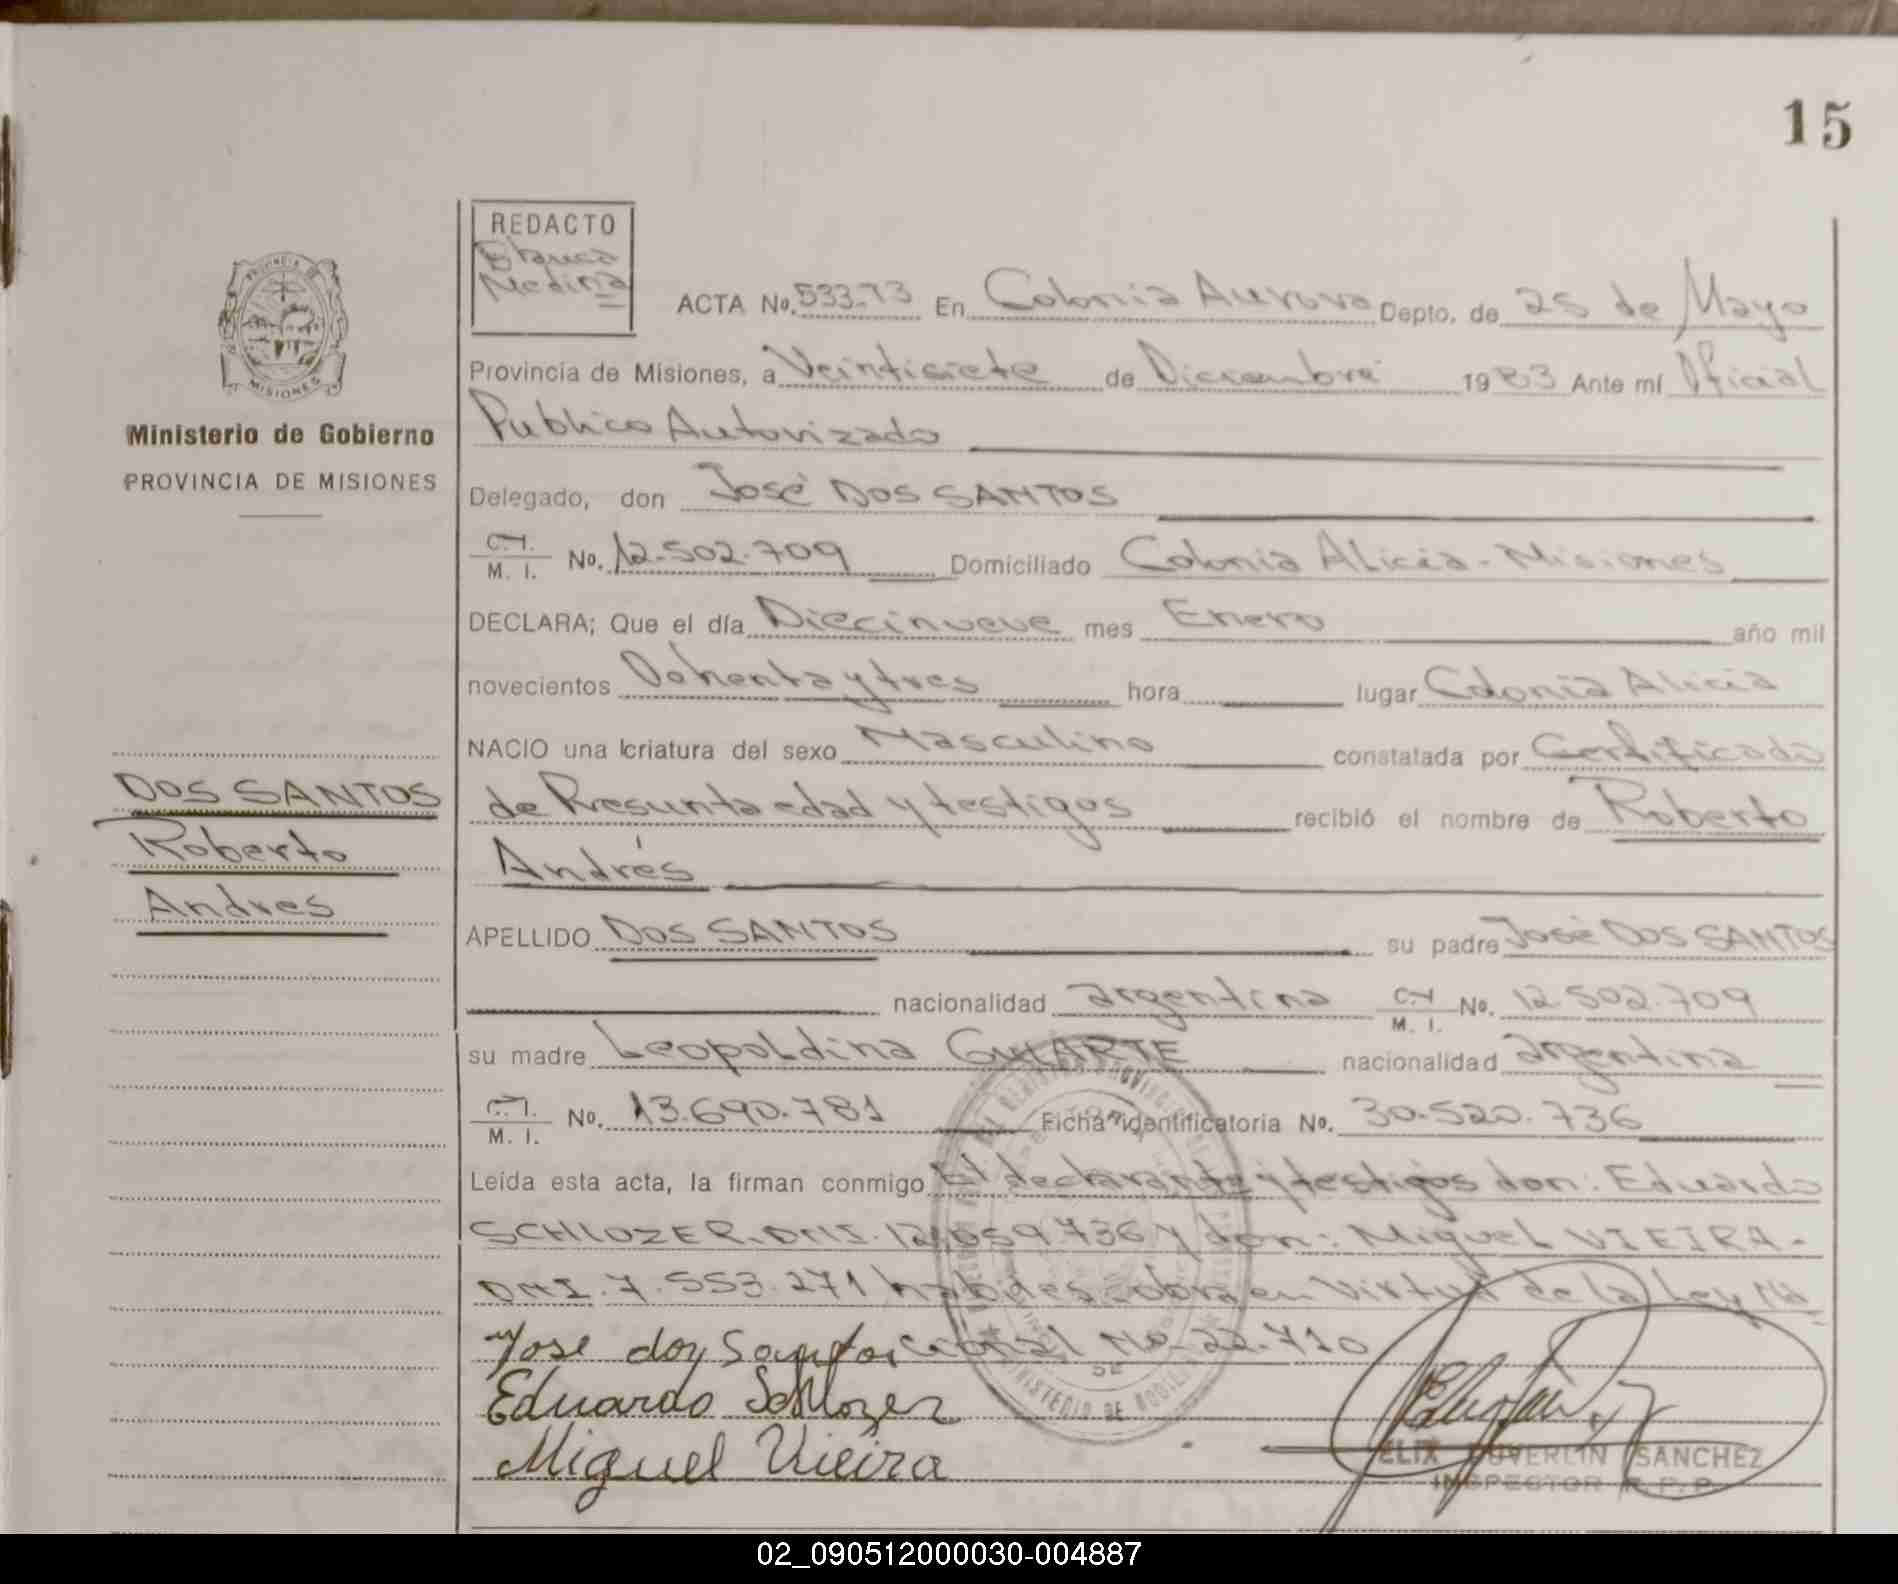 15
REDACTO
Blanca
Medina
PROVINCIA DE
MISIONES
Ministerio de Gobierno
PROVINCIA DE MISIONES
DOS SANTOS
Roberto
Andres
ACTA No. 533-73 En Colonia Aurora Depto. de 25 de Mayo
Provincia de Misiones, a Veintisiete de Diciembre 1983 Ante mí Oficial
Publico Autorizado
Delegado, don José DOS SANTOS
C.I. M. I. No. 12.502.709 Domiciliado Colonia Alicia - Misiones
DECLARA; Que el día Diecinueve mes Enero año mil
novecientos Ochenta y tres hora lugar Colonia Alicia
NACIO una criatura del sexo Masculino constatada por Certificado
de Presunta edad y testigos recibió el nombre de Roberto
Andrés
APELLIDO DOS SANTOS su padre José DOS SANTOS
nacionalidad argentina C.I. M. I. No. 12.502.709
su madre Leopoldina GUIARTE nacionalidad argentina
C.I. M. I. No. 13.690.781 Ficha identificatoria No. 30.520.736
Leída esta acta, la firman conmigo El declarante y testigos don: Eduardo
SCHLOZER. DNI. 12.059.736 y don: Miguel VIEIRA-
DNI. 7.553.271 en Virtud de la Ley Na
cional No 22.710
Jose dos Santos
Eduardo Schlozer
Miguel Vieira
SANCHEZ
INSPECTOR R.P.P.
02_090512000030-004887